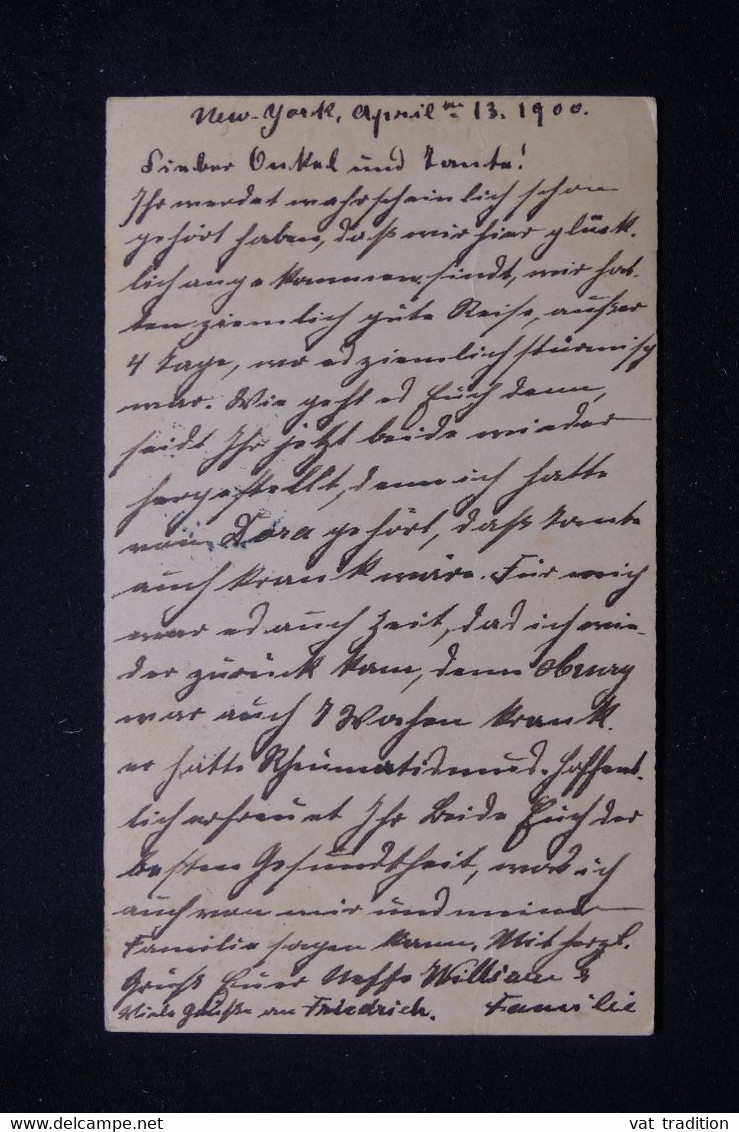 New-York, April 13. 1900.
Lieber Onkel und Tante!
Ihr werdet wahrscheinlich schon
gehört haben, daß wir hier glück-
lich angekommen sindt, wir hat-
ten ziemlich gute Reise, außer
4 Tage, wo es ziemlich stürmisch
war. Wie geht es Euch denn,
seidt Ihr jetzt beide wieder
hergestellt, denn ich hatte
von Dora gehört, daß Tante
auch krank wäre. Für mich
war es auch Zeit, das ich wie-
der zurück kam, denn
war auch 7 Wochen krank.
er hatte Rheumatismus. Hoffent-
lich erfreuet Ihr Beide Euch der
besten Gesundtheit, was ich
auch von mir und meiner
Familie sagen kann. Mit herzl.
Gruß Euer Neffe William &
Viele Grüße an Friedrich. Familie
vat tradition
delcampe.net